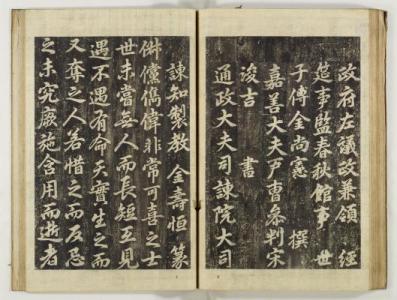 政府左議政兼領 經
筵事監春秋館事 世
子傅金尚憲 撰
嘉善大夫戶曹參判宋
浚吉 書
通政大夫司諫院大司
諫知製教 金壽恒 篆
俶儻儁偉非常可喜之士
世未嘗無人而長短互見
遇不遇有命天實生之而
又奪之人若惜之而反忌
之未究厥施含用而逝者